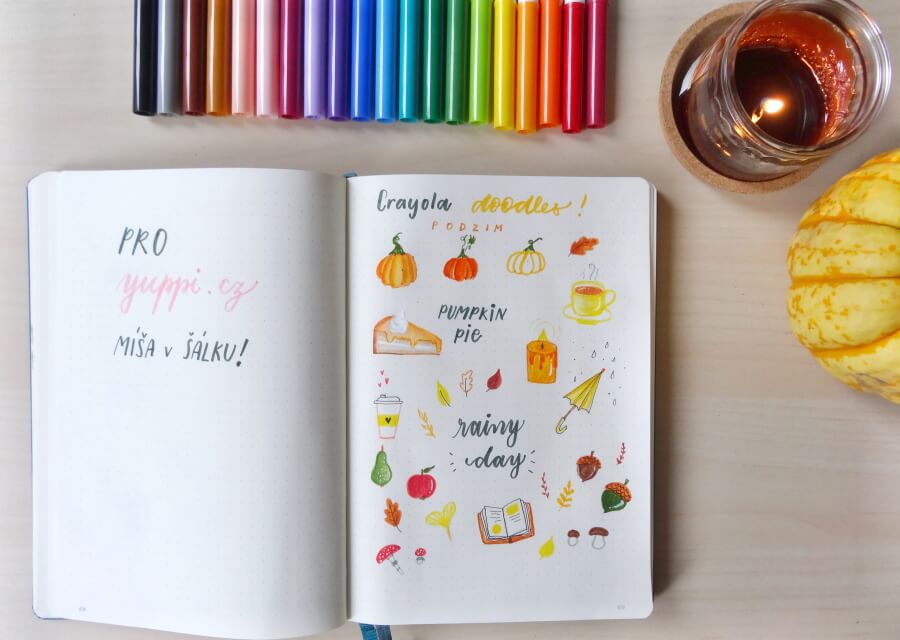 PRO
yuppi.cz
MÍŠA v ŠÁLKU!
Crayola doodles!
PODZIM
PUMPKIN
PIE
rainy
day